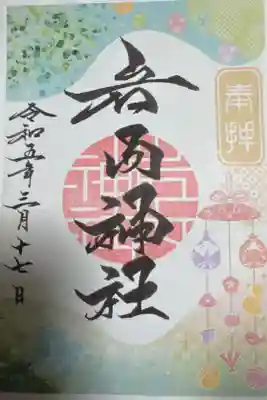 奉拝
岩内神社
令和五年三月十七日